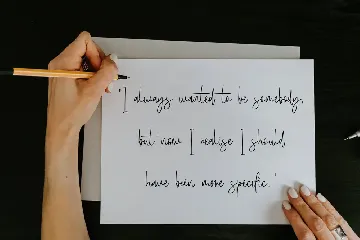 "I always wanted to be somebody,
but now I realise I should
have been more specific."